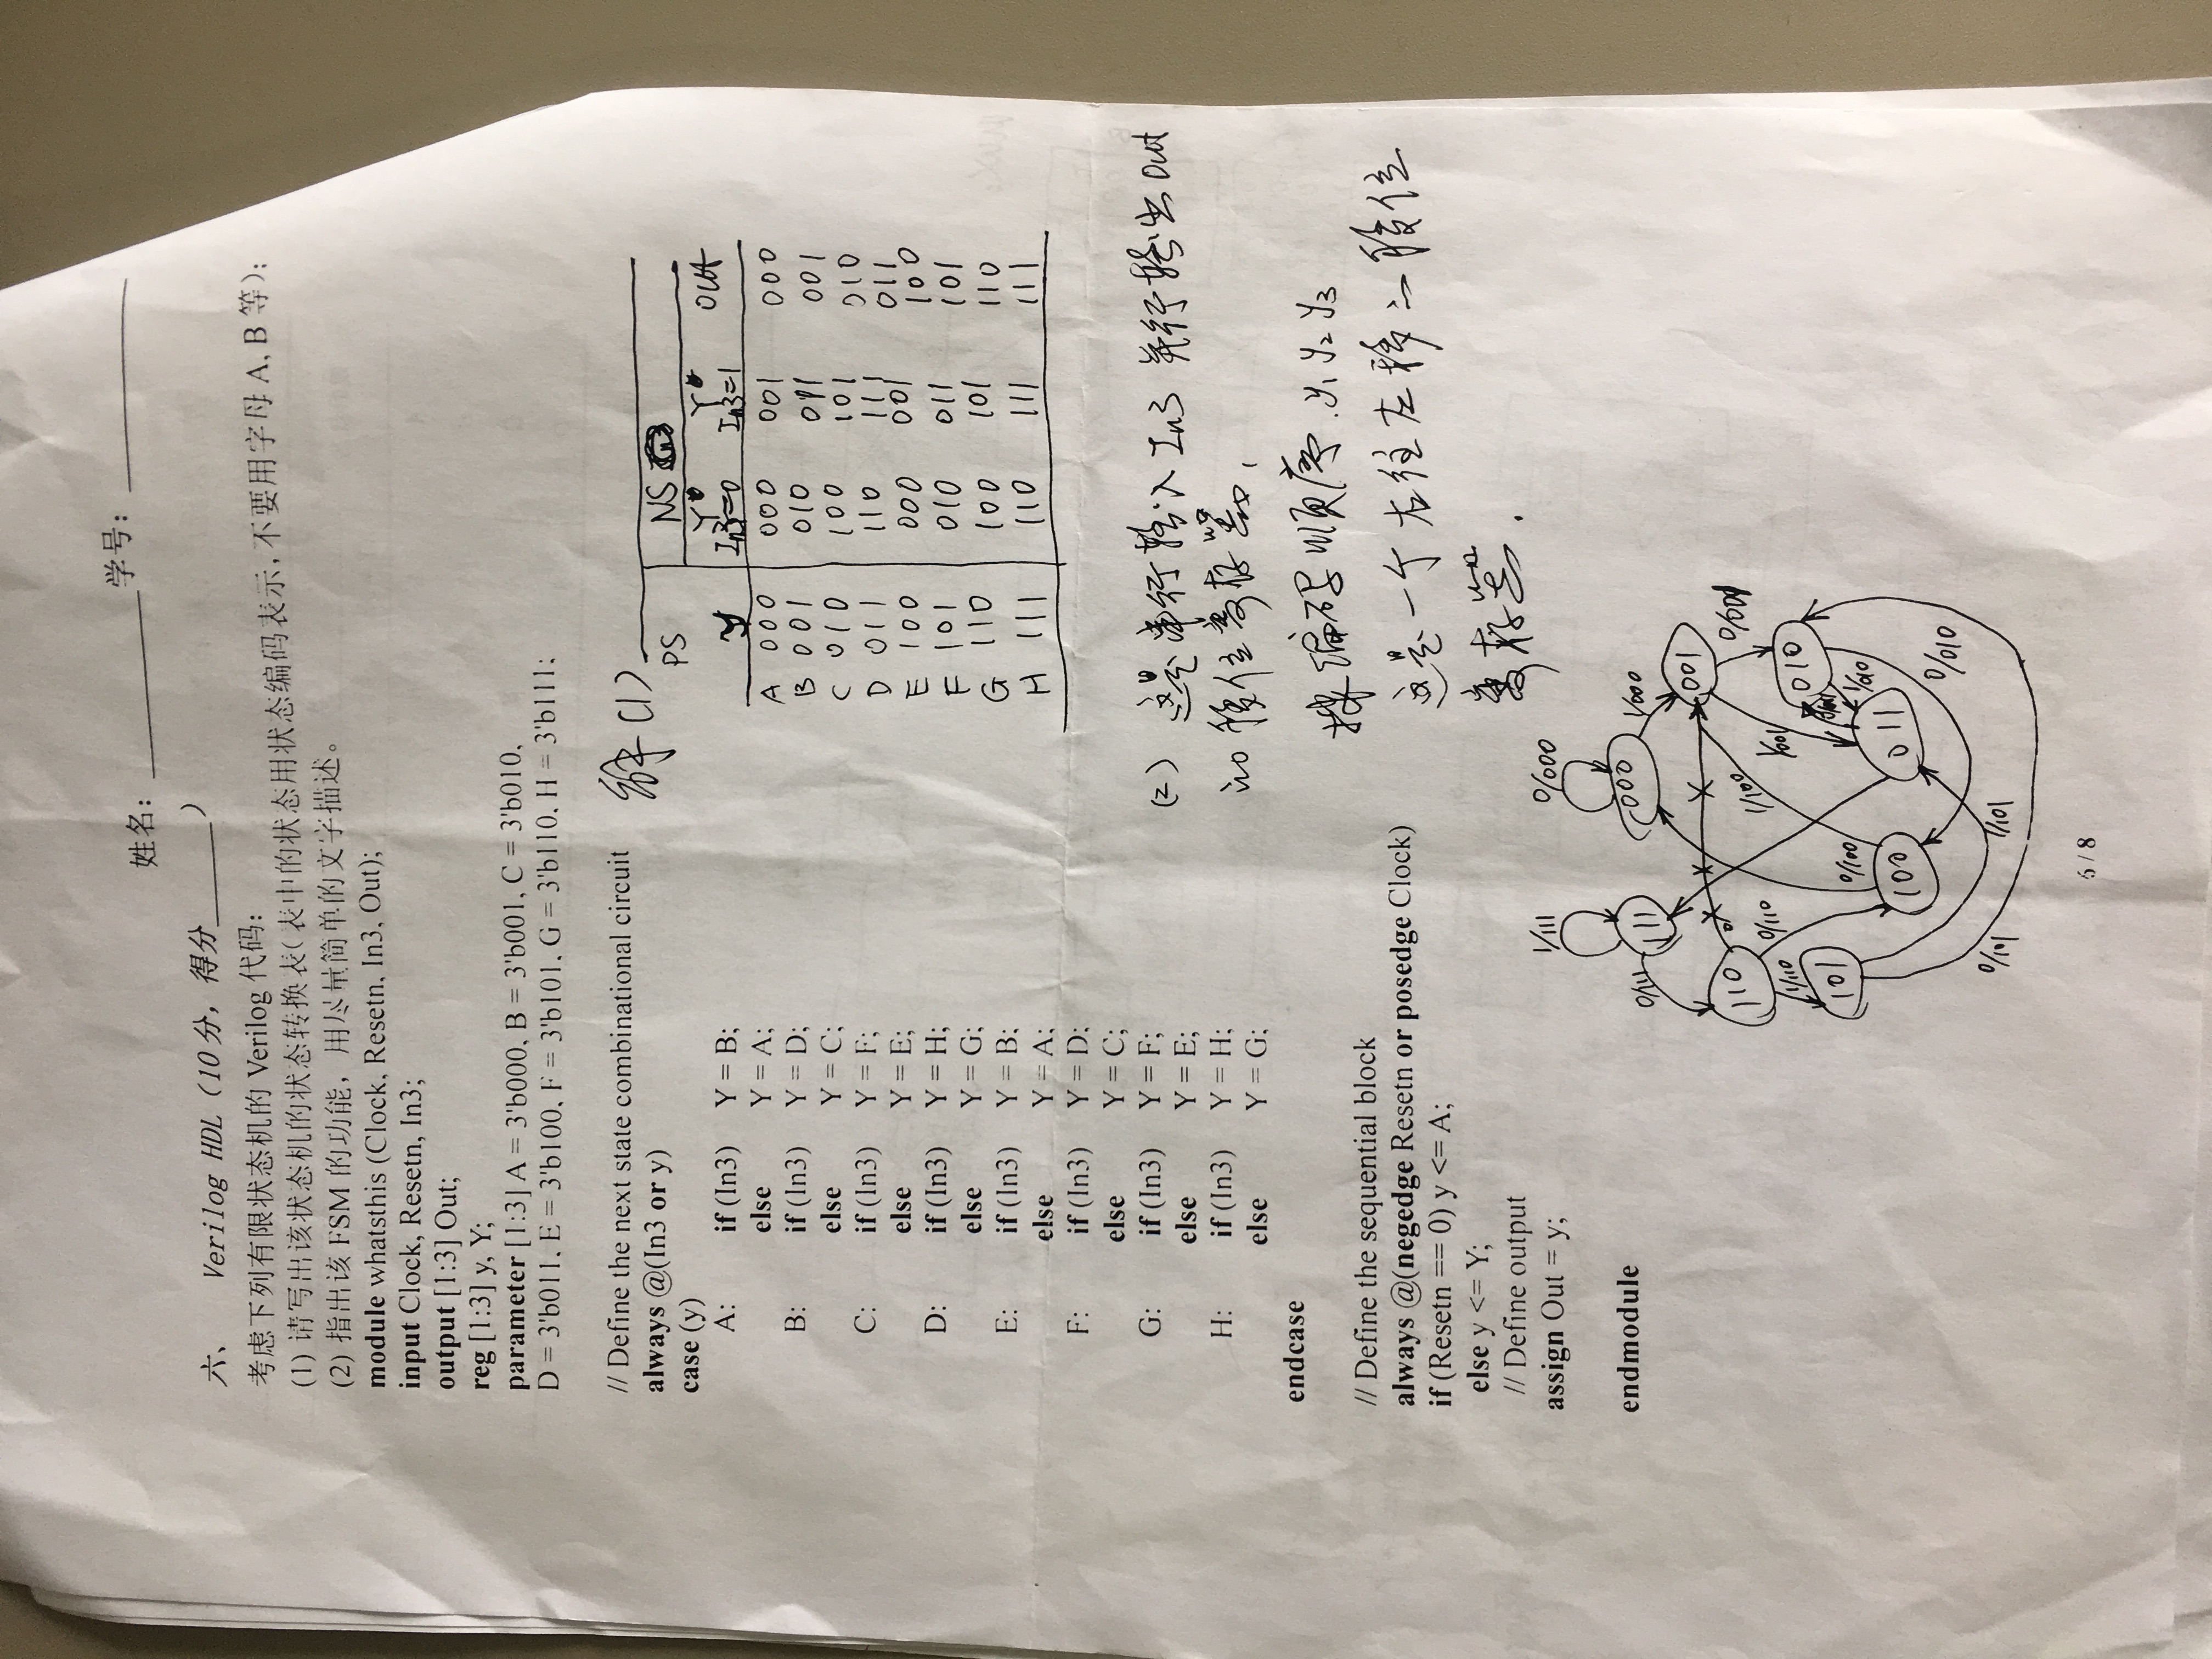 姓名： 学号：
六、 Verilog HDL（10分，得分______）
考虑下列有限状态机的 Verilog 代码：
(1) 请写出该状态机的状态转换表（表中的状态用状态编码表示，不要用字母 A, B 等）；
(2) 指出该 FSM 的功能，用尽量简单的文字描述。
module whatsthis (Clock, Resetn, In3, Out);
input Clock, Resetn, In3;
output [1:3] Out;
reg [1:3] y, Y;
parameter [1:3] A = 3'b000, B = 3'b001, C = 3'b010,
D = 3'b011, E = 3'b100, F = 3'b101, G = 3'b110, H = 3'b111;
// Define the next state combinational circuit
always @(In3 or y)
case (y)
A: if (In3) Y = B;
else Y = A;
B: if (In3) Y = D;
else Y = C;
C: if (In3) Y = F;
else Y = E;
D: if (In3) Y = H;
else Y = G;
E: if (In3) Y = B;
else Y = A;
F: if (In3) Y = D;
else Y = C;
G: if (In3) Y = F;
else Y = E;
H: if (In3) Y = H;
else Y = G;
endcase
// Define the sequential block
always @(negedge Resetn or posedge Clock)
if (Resetn == 0) y <= A;
else y <= Y;
// Define output
assign Out = y;
endmodule
解(1)
PS NS
Y Y out
y In3=0 In3=1
A 000 000 001 000
B 001 010 011 001
C 010 100 101 010
D 011 110 111 011
E 100 000 001 100
F 101 010 011 101
G 110 100 101 110
H 111 110 111 111
(2) 这是串行输入In3 并行输出Out
的移位寄存器，
按编码顺序.y1 y2 y3
这是一个右往左移的移位
寄存器.
1/111 0/000
111 000
0/111 1/000
001
110 0/001
0/110 1/100 1/001
1/110 010
101
0/100 1/010
100 011
0/010
0/101 1/101
6 / 8